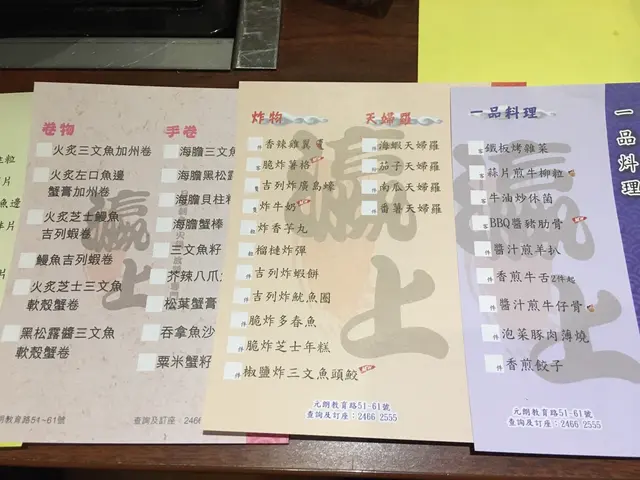 卷物
火炙三文魚加州卷
火炙左口魚邊
蟹膏加州卷
火炙芝士鰻魚
吉列蝦卷
鰻魚吉列蝦卷
火炙芝士三文魚
軟殼蟹卷
黑松露醬三文魚
軟殼蟹卷
手卷
海膽三文
海膽黑松
海膽貝柱
海膽蟹棒
三文魚籽
芥辣八爪
松葉蟹膏
吞拿魚沙
粟米蟹籽
朗教育路51-61號
查詢及訂座：2466
炸物
香辣雞翼
脆炸茅棓
吉列炸廣島蠔
炸牛奶
炸香芋丸
榴槤炸彈
吉列炸蝦餅
吉列炸魷魚圈
脆炸多春魚
脆炸芝士年糕
椒鹽炸三文魚頭鮫
天婦羅
海蝦天婦羅
茄子天婦羅
南瓜天婦羅
番薯天婦羅
瀛上
元朗教育路51-61號
查詢及訂座：2466 2555
一品料理
鐵板烤雜菜
蒜片煎牛柳粒
牛油炒休菌
BBQ醬豬肋骨
醬汁煎羊扒
香煎牛舌2件起
醬汁煎牛仔骨
泡菜豚肉薄燒
香煎餃子
瀛上
元朗教育路51-61號
查詢及訂座：2466 2555
一品料理